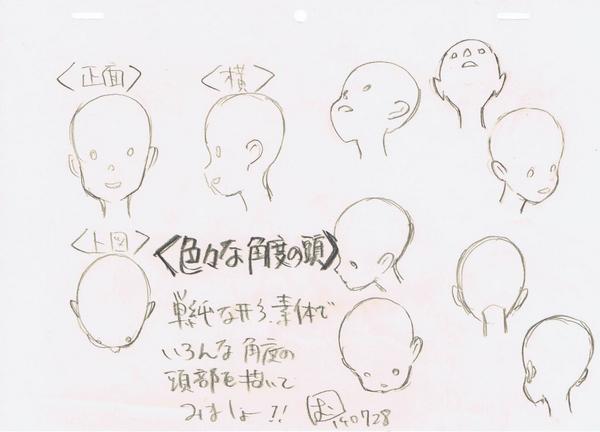 〈正面〉
〈横〉
〈上図〉
〈色々な角度の頭〉
単純な形、素体で
いろんな角度の
頭部を描いて
みましょー!!
む 140728